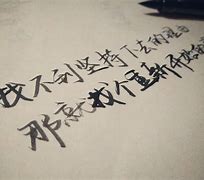 找不到坚持下去的理由
那就找个重新开始的